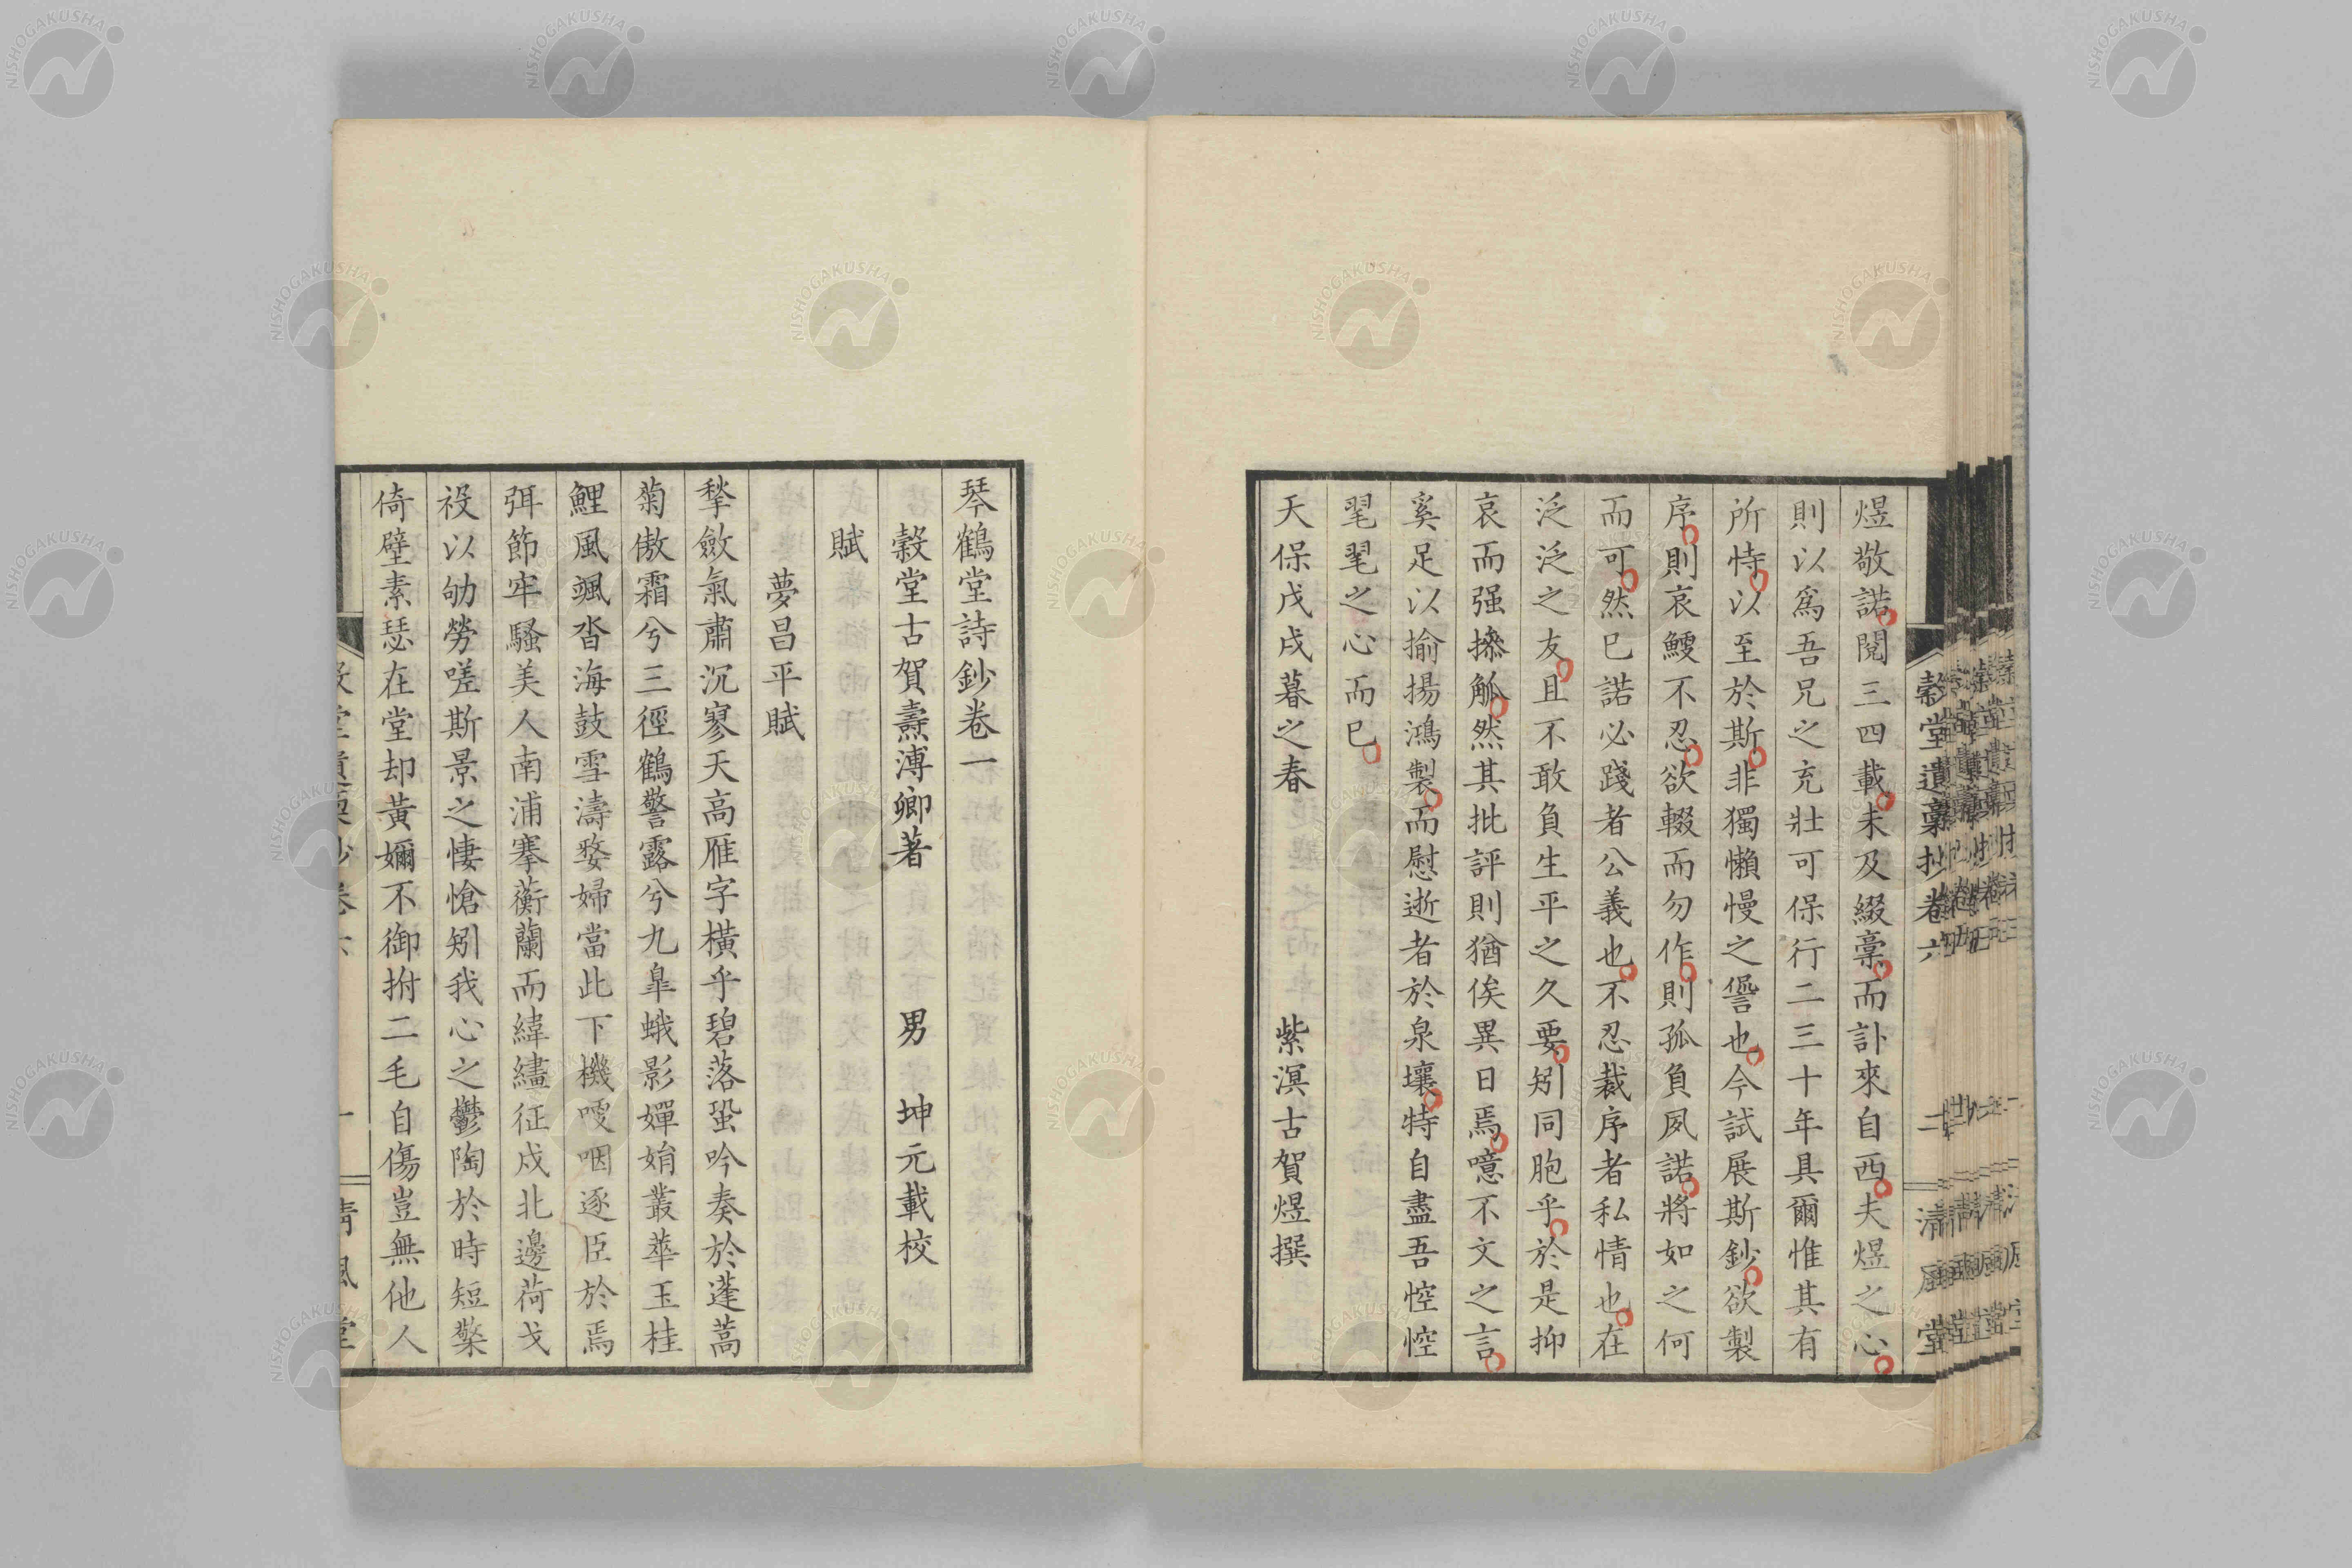 煜敬諾閱三四載未及綴稾而訃來自西夫煜之心
則以爲吾兄之充壯可保行二三十年具爾惟其有
所恃以至於斯非獨懶慢之諐也今試展斯鈔欲製
序則哀鯁不忍欲輟而勿作則孤負夙諾將如之何
而可然已諾必踐者公義也不忍裁序者私情也在
泛泛之友且不敢負生平之久要矧同胞乎於是抑
哀而强搽觚然其批評則猶俟異日焉噫不文之言
奚足以揄揚鴻製而慰逝者於泉壤特自盡吾悾悾
毣毣之心而已
天保戊戌暮之春 紫溟古賀煜撰
穀堂遺稾抄卷六 二 清風堂
琴鶴堂詩鈔卷一
穀堂古賀燾溥卿著 男 坤元載校
賦
夢昌平賦
揫斂氣肅沉寥天高雁字橫乎碧落蛩吟奏於蓬蒿
菊傲霜兮三徑鶴警露兮九臯蛾影嬋娟叢華玉桂
鯉風颯沓海鼓雪濤婺婦當此下機嘎咽逐臣於焉
弭節牢騷美人南浦搴蘅蘭而緯繣征戍北邊荷戈
祋以劬勞嗟斯景之悽愴矧我心之鬱陶於時短檠
倚壁素瑟在堂却黃嬭不御拊二毛自傷豈無他人